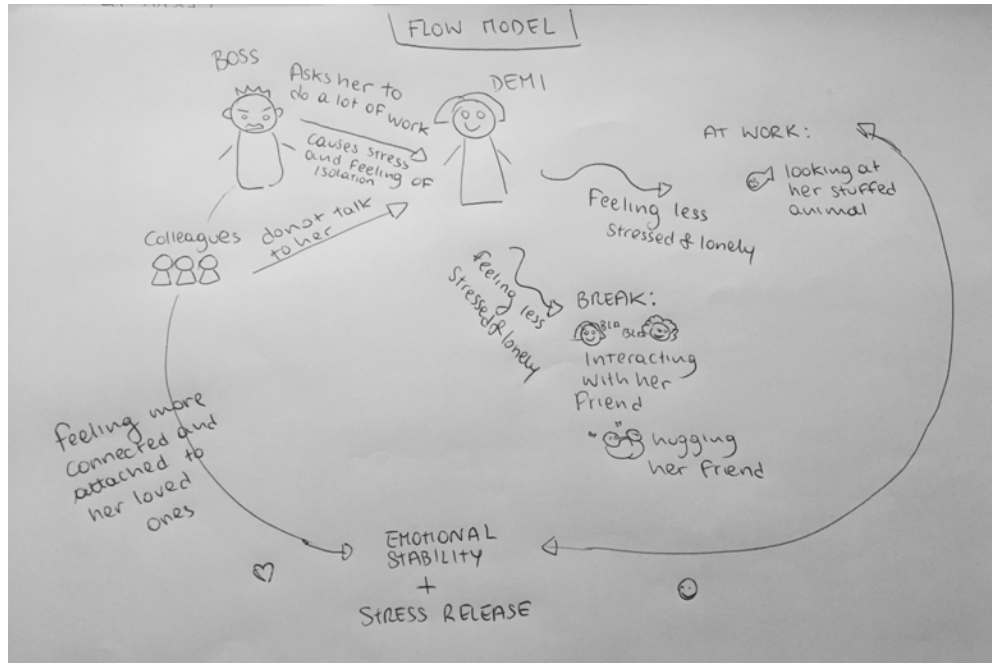 FLOW MODEL
BOSS
Asks her to
do a lot of work
causes stress
and feeling of
isolation
DEMI
Colleagues
do not talk
to her
Feeling less
stressed & lonely
AT WORK:
looking at
her stuffed
animal
feeling less
stressed & lonely
BREAK:
BLA
BLA
Interacting
with her
Friend
hugging
her friend
feeling more
connected and
attached to
her loved
ones
EMOTIONAL
STABILITY
+
STRESS RELEASE